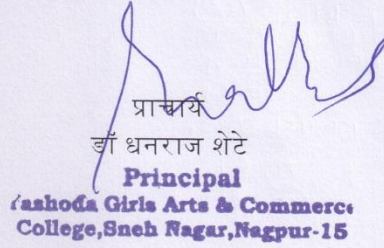 प्राचार्य
डॉ धनराज शेटे
Principal
Yashoda Girls Arts & Commerce
College,Sneh Nagar,Nagpur-15